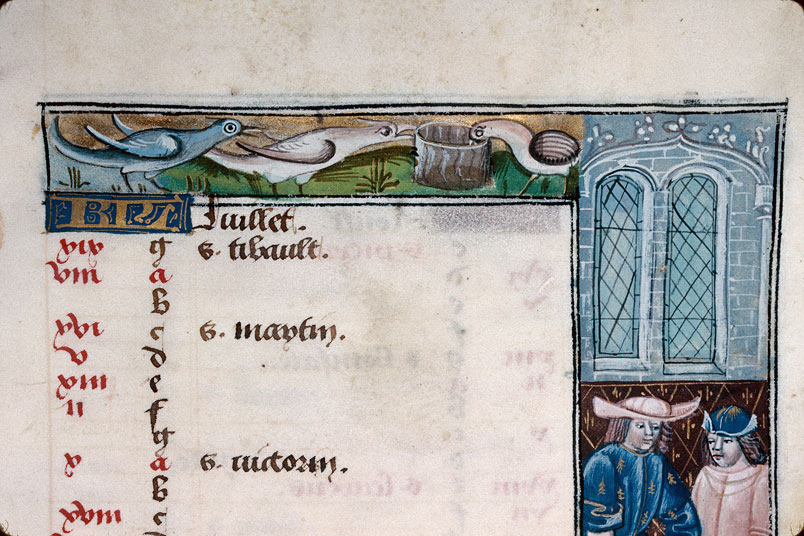 Juillet.
xix g s. tibault.
viii a
b
xvi c s. maytin.
v d
xiii e
ii f
g
x a s. victorin.
b
xviii c